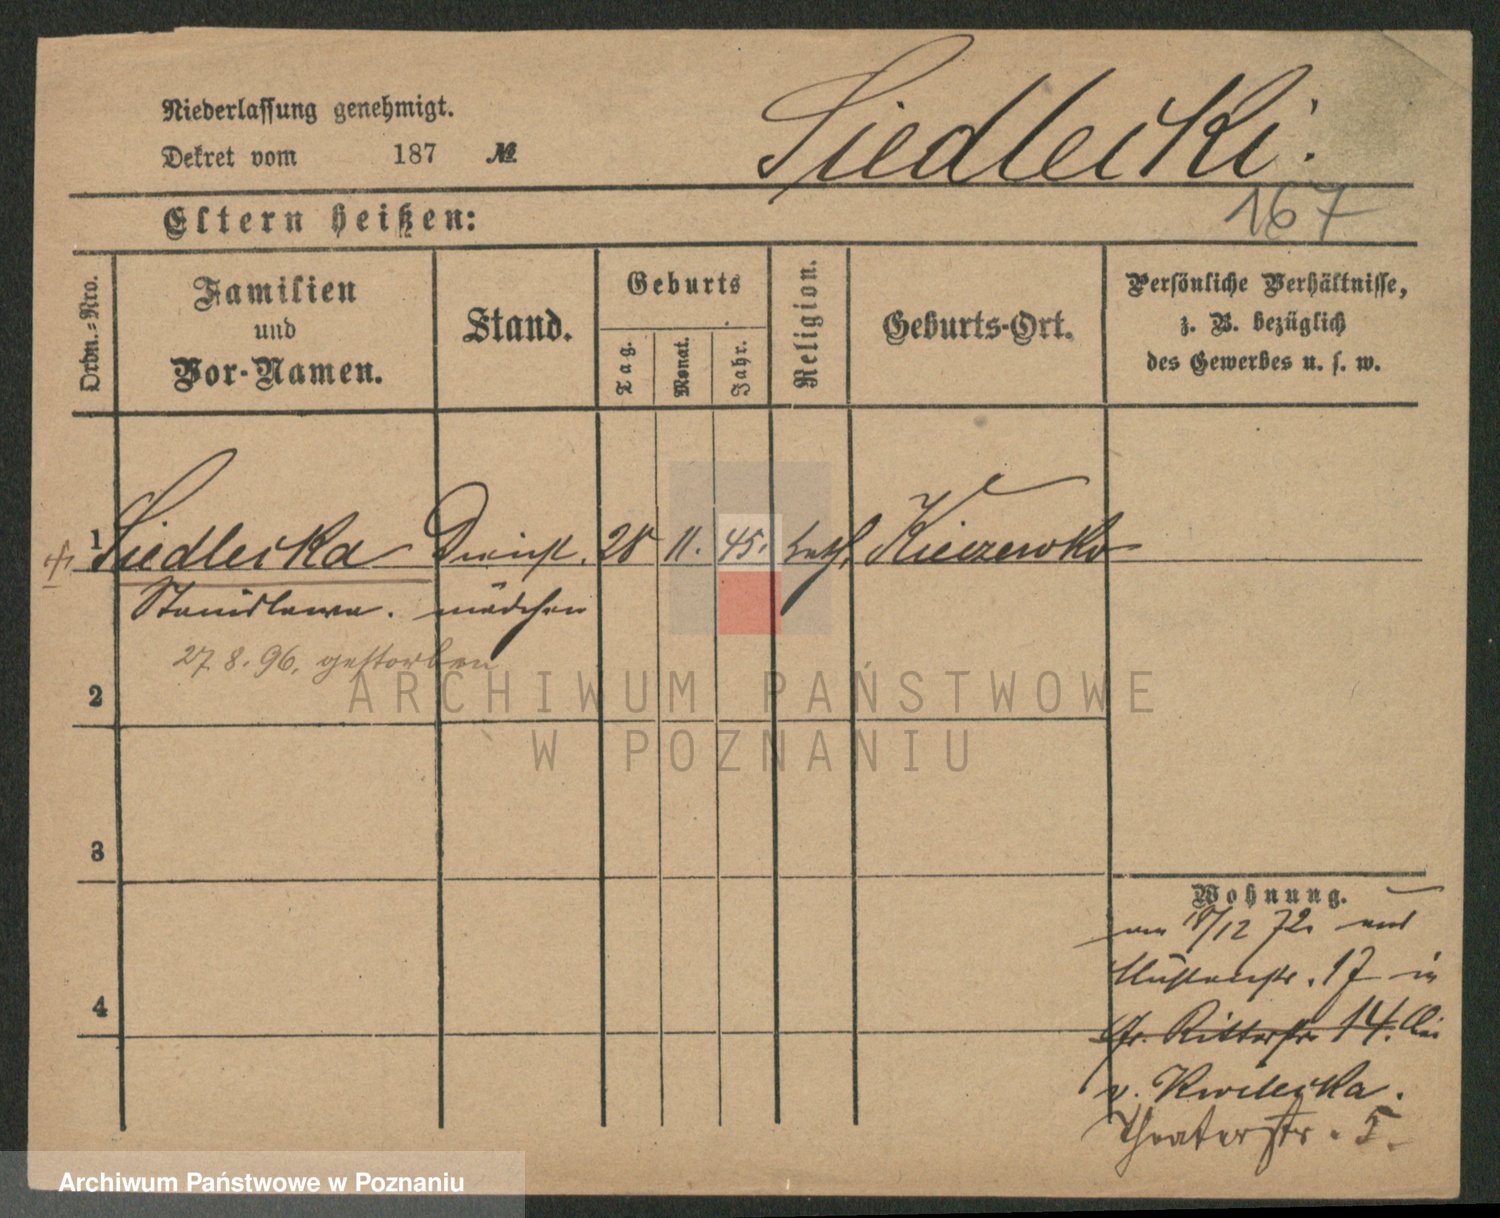 Niederlassung genehmigt.
Siedlecki.
Dekret vom 187 №
167
Eltern heißen:
Ordn.-Nro.
Familien
und
Vor-Namen.
Stand.
Geburts
Tag.
Monat.
Jahr.
Religion.
Geburts-Ort.
Persönliche Verhältnisse,
z. B. bezüglich
des Gewerbes u. s. w.
1 Siedlecka Dienst. 28 11. 45. kath. Kiczewko
Stanislawa. mädchen
27. 8. 96. gestorben
2
ARCHIWUM PAŃSTWOWE
W POZNANIU
3
Wohnung.
18/12 72
17 in
4
Gr. Ritterstr. 14. bei
v. Kwilecka.
Theaterstr. 5.
Archiwum Państwowe w Poznaniu